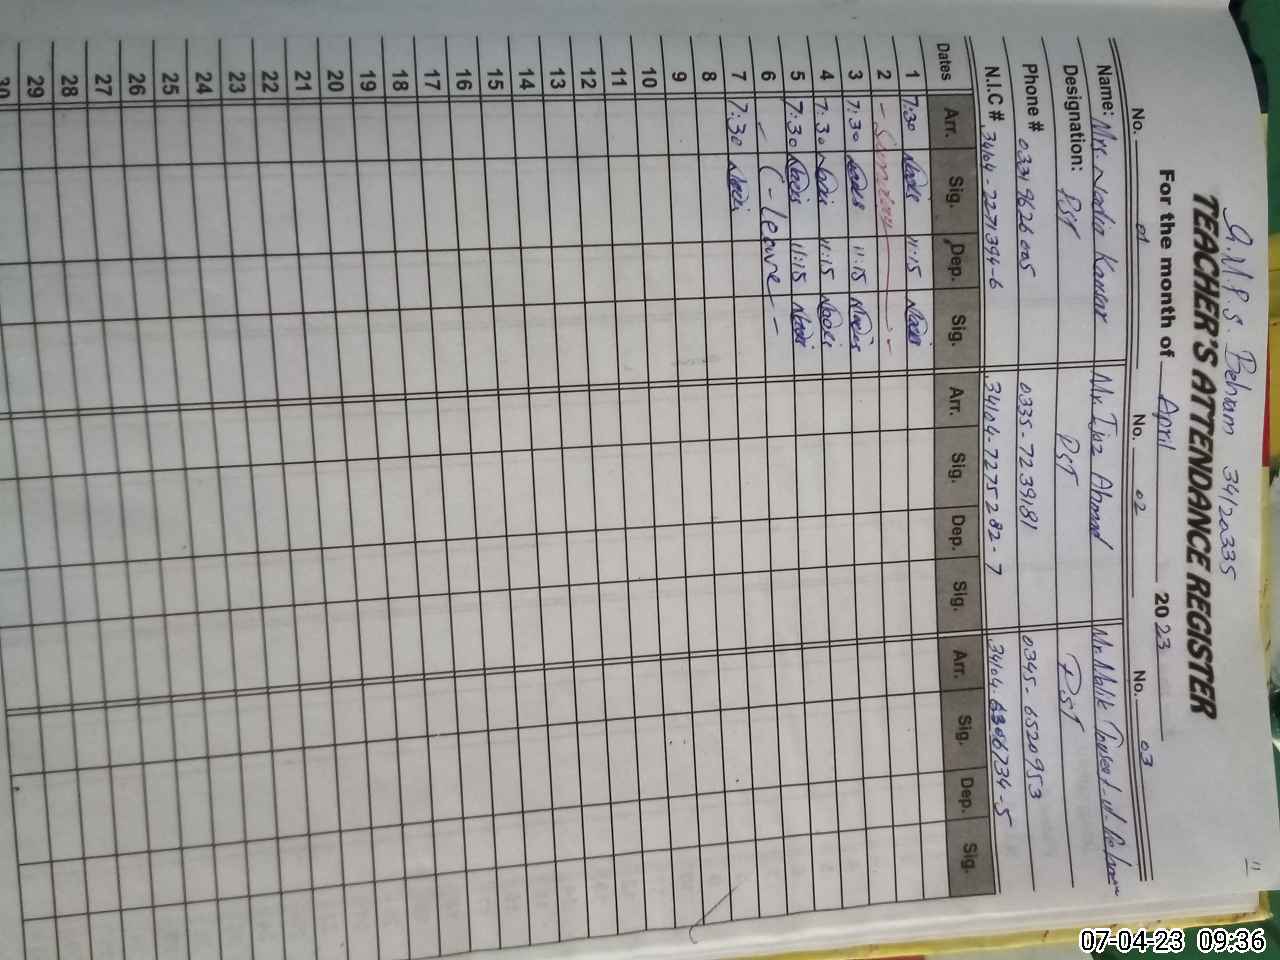 G.M.P.S. Behram 34120335
TEACHER'S ATTENDANCE REGISTER
For the month of April 2023
No. 01 No. 02 No. 03
Name: Mrs. Nadia Kausar Mr. Ijaz Ahmad Mr. Malik
Designation: PST PST PST
Phone # 0331 9626005 0335-7239181 0345-6520953
N.I.C # 3404-2271394-6 34104-7275282-7 34104-6306734-5
Dates Arr. Sig. Dep. Sig. Arr. Sig. Dep. Sig. Arr. Sig. Dep. Sig.
1 7:30 Nadia 11:15 Nadia
2 - Sunday -
3 7:30 Nadia 11:15 Nadia
4 7:30 Nadia 11:15 Nadia
5 7:30 Nadia 11:15 Nadia
6 - C - leave -
7 7:30 Nadia
8
9
10
11
12
13
14
15
16
17
18
19
20
21
22
23
24
25
26
27
28
29
30
07-04-23 09:36